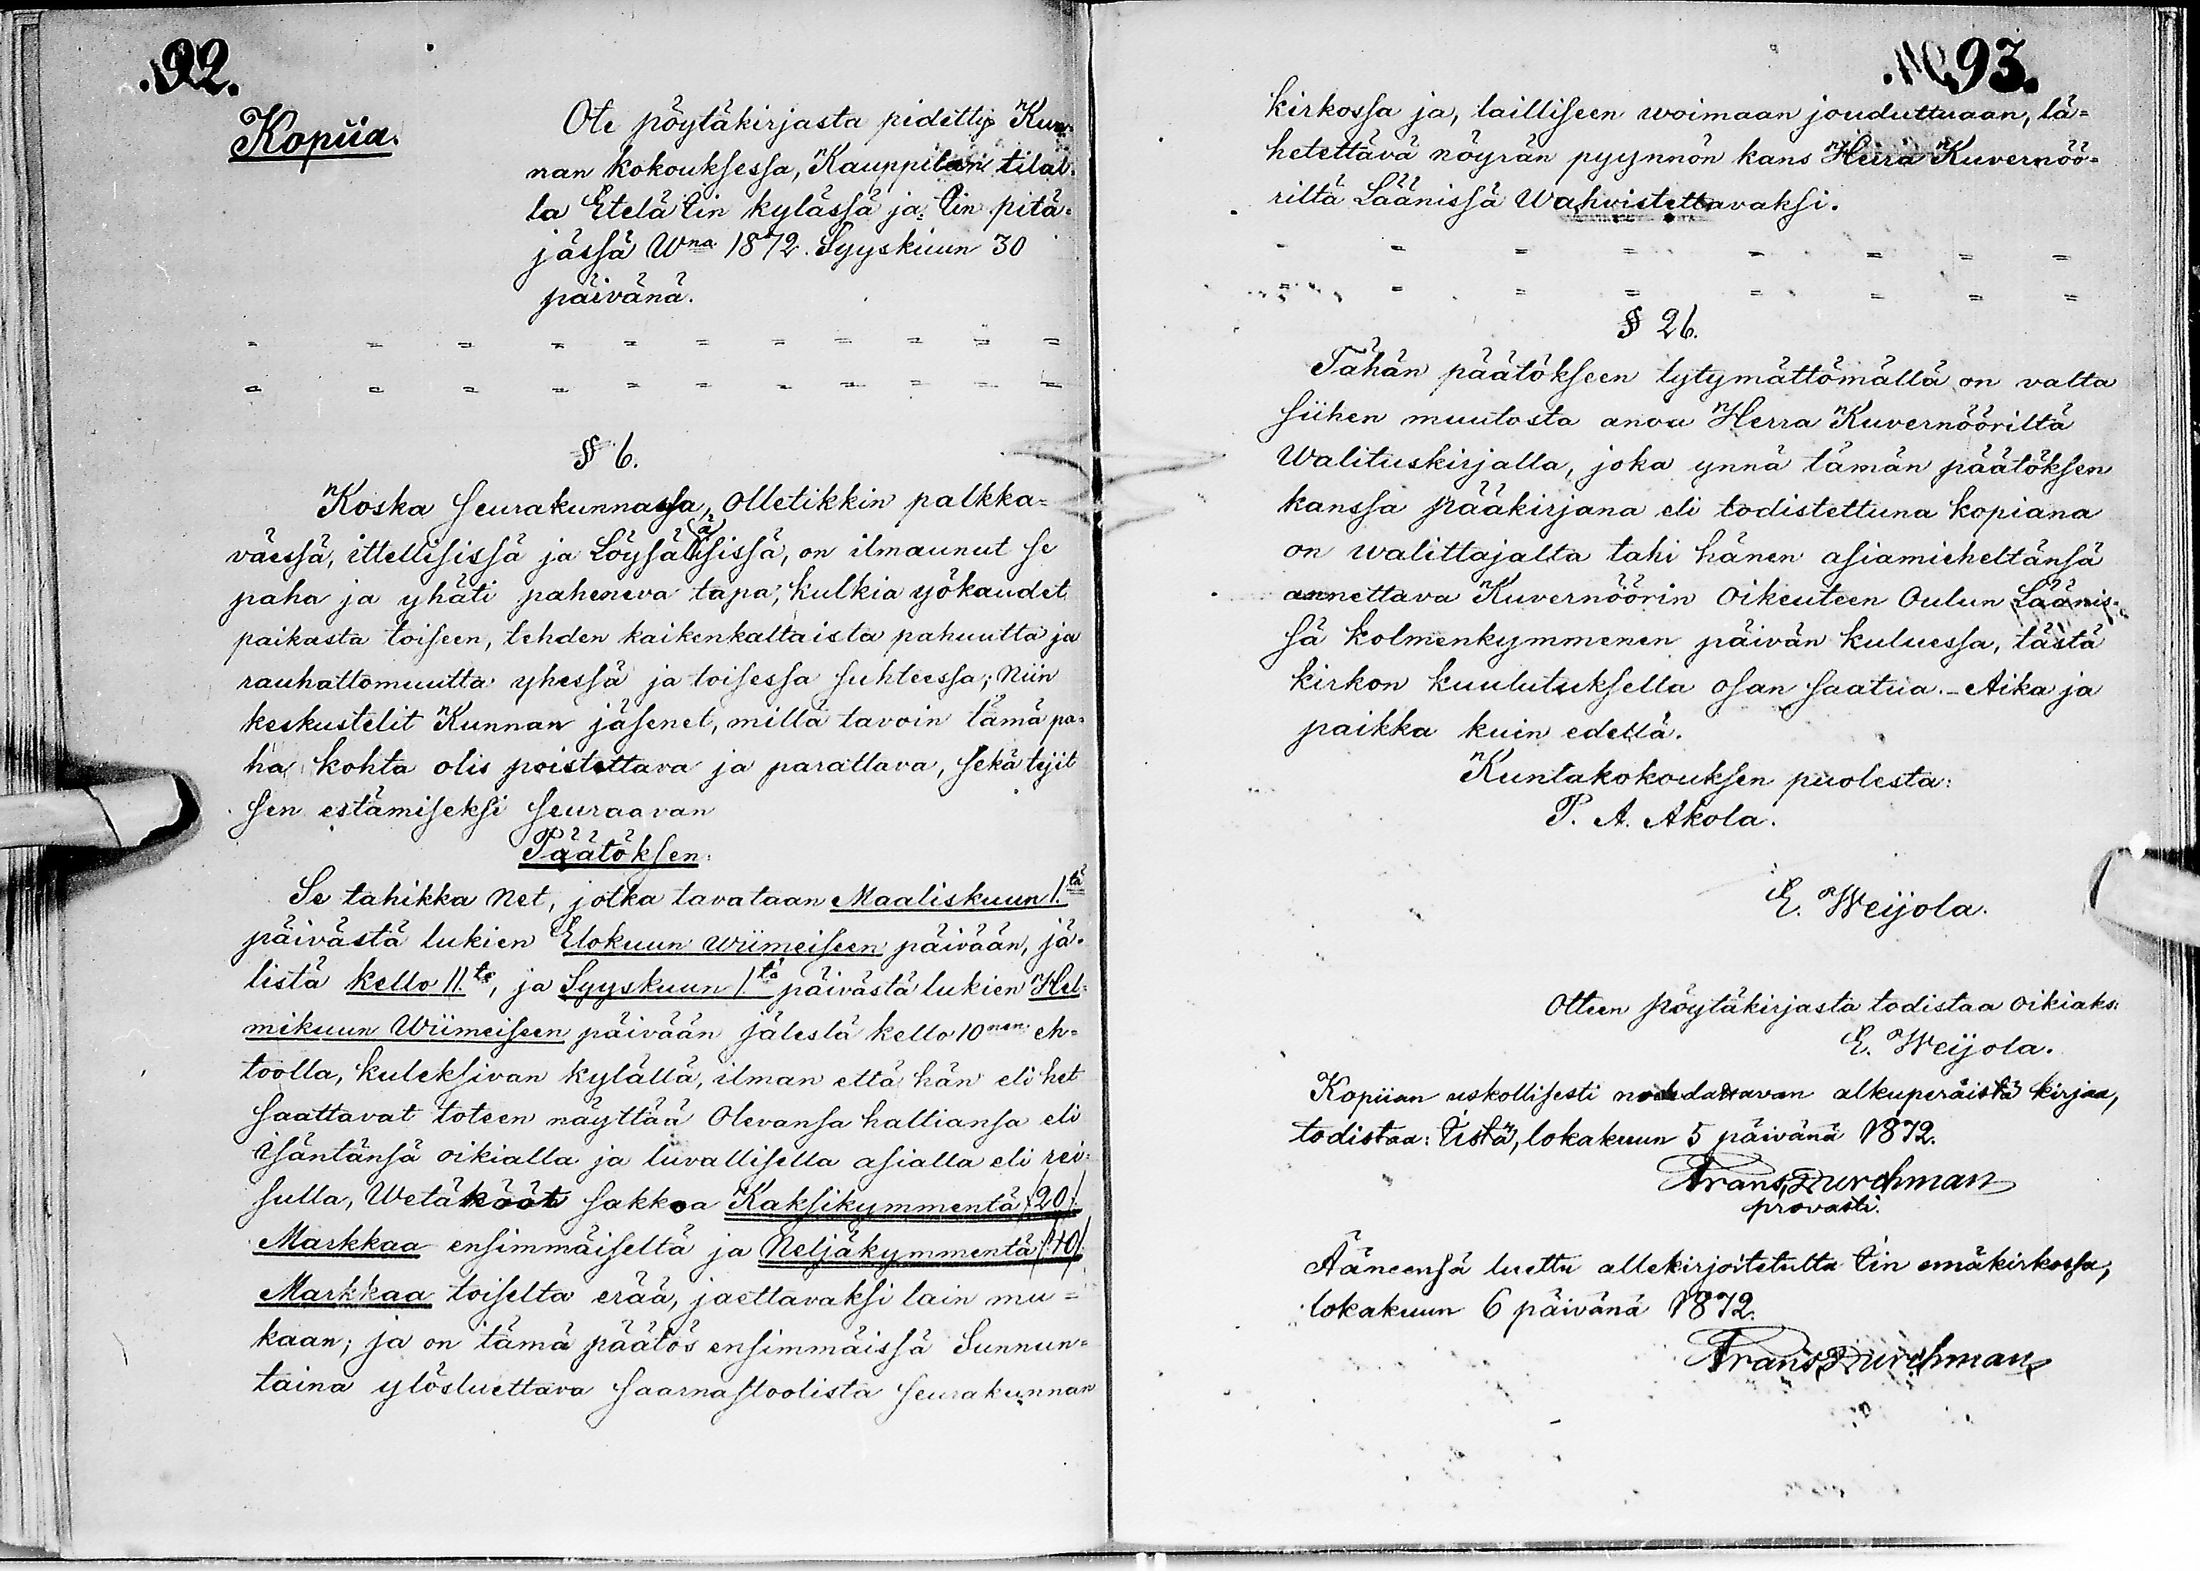 92.
Kopiia.
Ote pöytäkirjasta pidettyö Kun-
nan kokouksessa, Kauppilan tilal-
la Etelä Iin kylässä ja Iin pitä-
jässä Wna 1872. Syyskuun 30
päivänä.
- = = = = = = = = = =
= = = = = = = = = = =
§ 6.
Koska seurakunnassa, olletikkin palkka=
väessä, ittellisissä ja Löysäläisissä, on ilmaunut se
paha ja yhäti paheneva tapa; kulkia yökaudet
paikasta toiseen, tehden kaikenkaltaista pahuutta ja
rauhattomuutta yhessä ja toisessa suhteessa; niin
keskustelit Kunnan jäsenet, millä tavoin tämä pa=
ha kohta olis poistettava ja parattava, sekä tejit
sen estämiseksi seuraavan
Päätöksen:
Se tahikka net, jotka tavataan Maaliskuun 1.tä
päivästä lukien Elokuun wiimeiseen päivään, jä-
listä kello 11.ta, ja Syyskuun 1.tä päivästä lukien Hel=
mikuun Wiimeiseen päivään jälestä kello 10nen eh=
toolla, kuleksivan kylällä, ilman että hän eli het
saattavat toteen näyttää olevansa halliansa eli
isäntänsä oikialla ja luvallisella asialla eli rei=
sulla, Wetäkööt sakkoa Kaksikymmentä /20/
Markkaa ensimmäiseltä ja Neljäkymmentä /40/
Markkaa toiselta erää, jaettavaksi lain mu=
kaan; ja on tämä päätös ensimmäissä Sunnun=
taina ylösluettava saarnastoolista seurakunnan
93.
kirkossa ja, lailliseen woimaan jouduttuaan, lä=
hetettävä nöyrän pyynnön kans Herra Kuvernöö=
riltä Läänissä Wahvistettavaksi.
- = = = = = = =
= = = = = = = =
§ 26.
Tähän päätökseen tytymättömällä on valta
siihen muutosta anoa Herra Kuvernööriltä
Walituskirjalla, joka ynnä tämän päätöksen
kanssa pääkirjana eli todistettuna kopiana
on walittajalta tahi hänen asiamieheltänsä
annettava Kuvernöörin Oikeuteen Oulun Läänis-
sä kolmenkymmenen päivän kuluessa, tästä
kirkon kuulutuksella osan saatua. - Aika ja
paikka kuin edellä.
Kuntakokouksen puolesta:
P. A. Akola.
E. Weijola.
Otteen pöytäkirjasta todistaa oikiaks:
E. Weijola.
Kopiian uskollisesti noudattavan alkuperäistä kirjaa,
todistaa: Iistä, lokakuun 5 päivänä 1872.
Frans Durchman
provasti.
Ääneensä luettu allekirjoitetulta Iin emäkirkossa,
lokakuun 6 päivänä 1872.
Frans Durchman